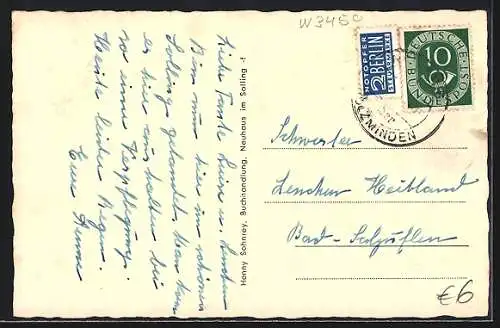 W3450
NOTOPFER
2 BERLIN
STEUERMARKE
DEUTSCHE
10
BUNDESPOST
HOLZMINDEN
Liebe Tante Luise u. Lenchen
Bin nun hier im schönen
Solling gelandet. Man kann
es hier aushalten bei
so einer Verpflegung.
Heute leider Regen.
Eure
Hanny Sohnrey, Buchhandlung, Neuhaus im Solling
Schwester
Lenchen Heitland
Bad-Salzuflen
€6